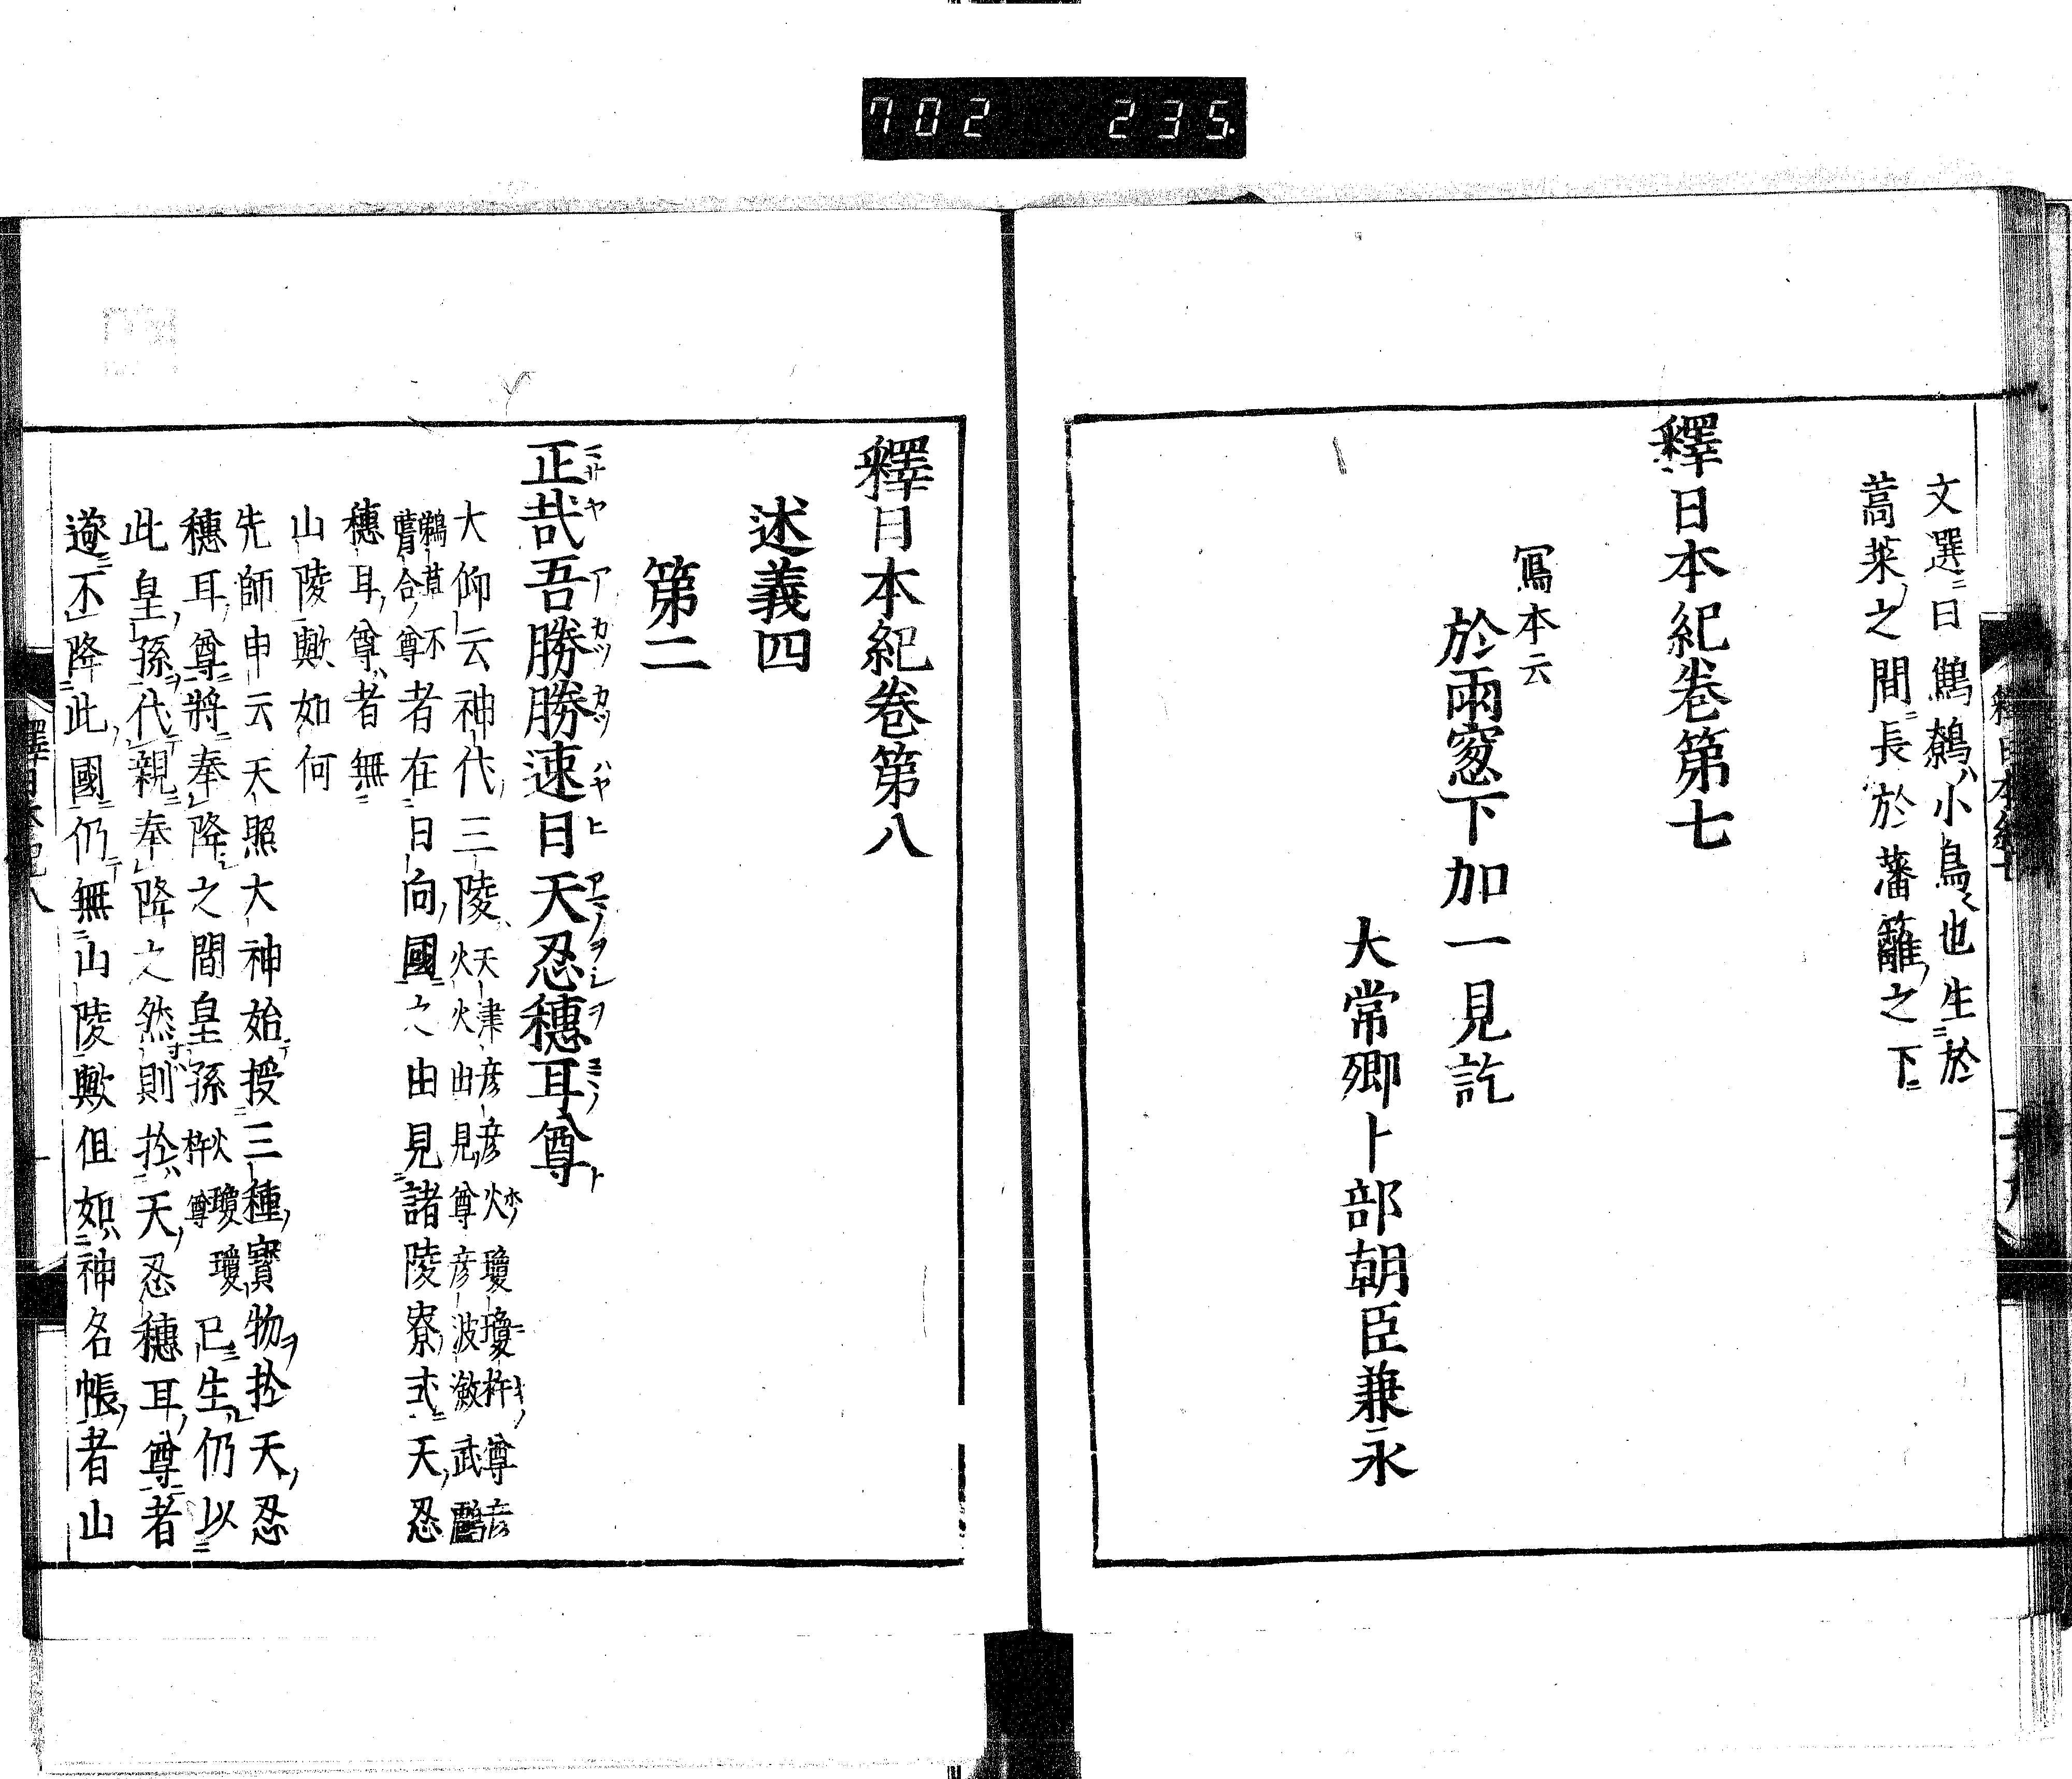 702 235
文選ニ曰鷦鷯ハ小鳥也生ニ於
蒿萊ノ之間ニ長於藩籬ノ之下ニ
釋日本紀卷第七
寫本云
於兩窓下加一見訖
大常卿卜部朝臣兼永
釋日本紀卷第八
述義四
第二
正哉吾勝勝速日天忍穗耳尊
大仰云神代三陵天津彦彦火瓊瓊杵尊彦火火出見尊彦波瀲武鸕
鷀草葺不合尊者在日向國之由見諸陵寮式天忍
穗耳尊者無
山陵歟如何
先師申云天照大神始授三種寶物於天忍
穗耳尊將奉降之間皇孫火瓊瓊杵尊已生仍以
此皇孫代親奉降之然則於天忍穗耳尊者
遂不降此國仍無山陵歟但如神名帳者山